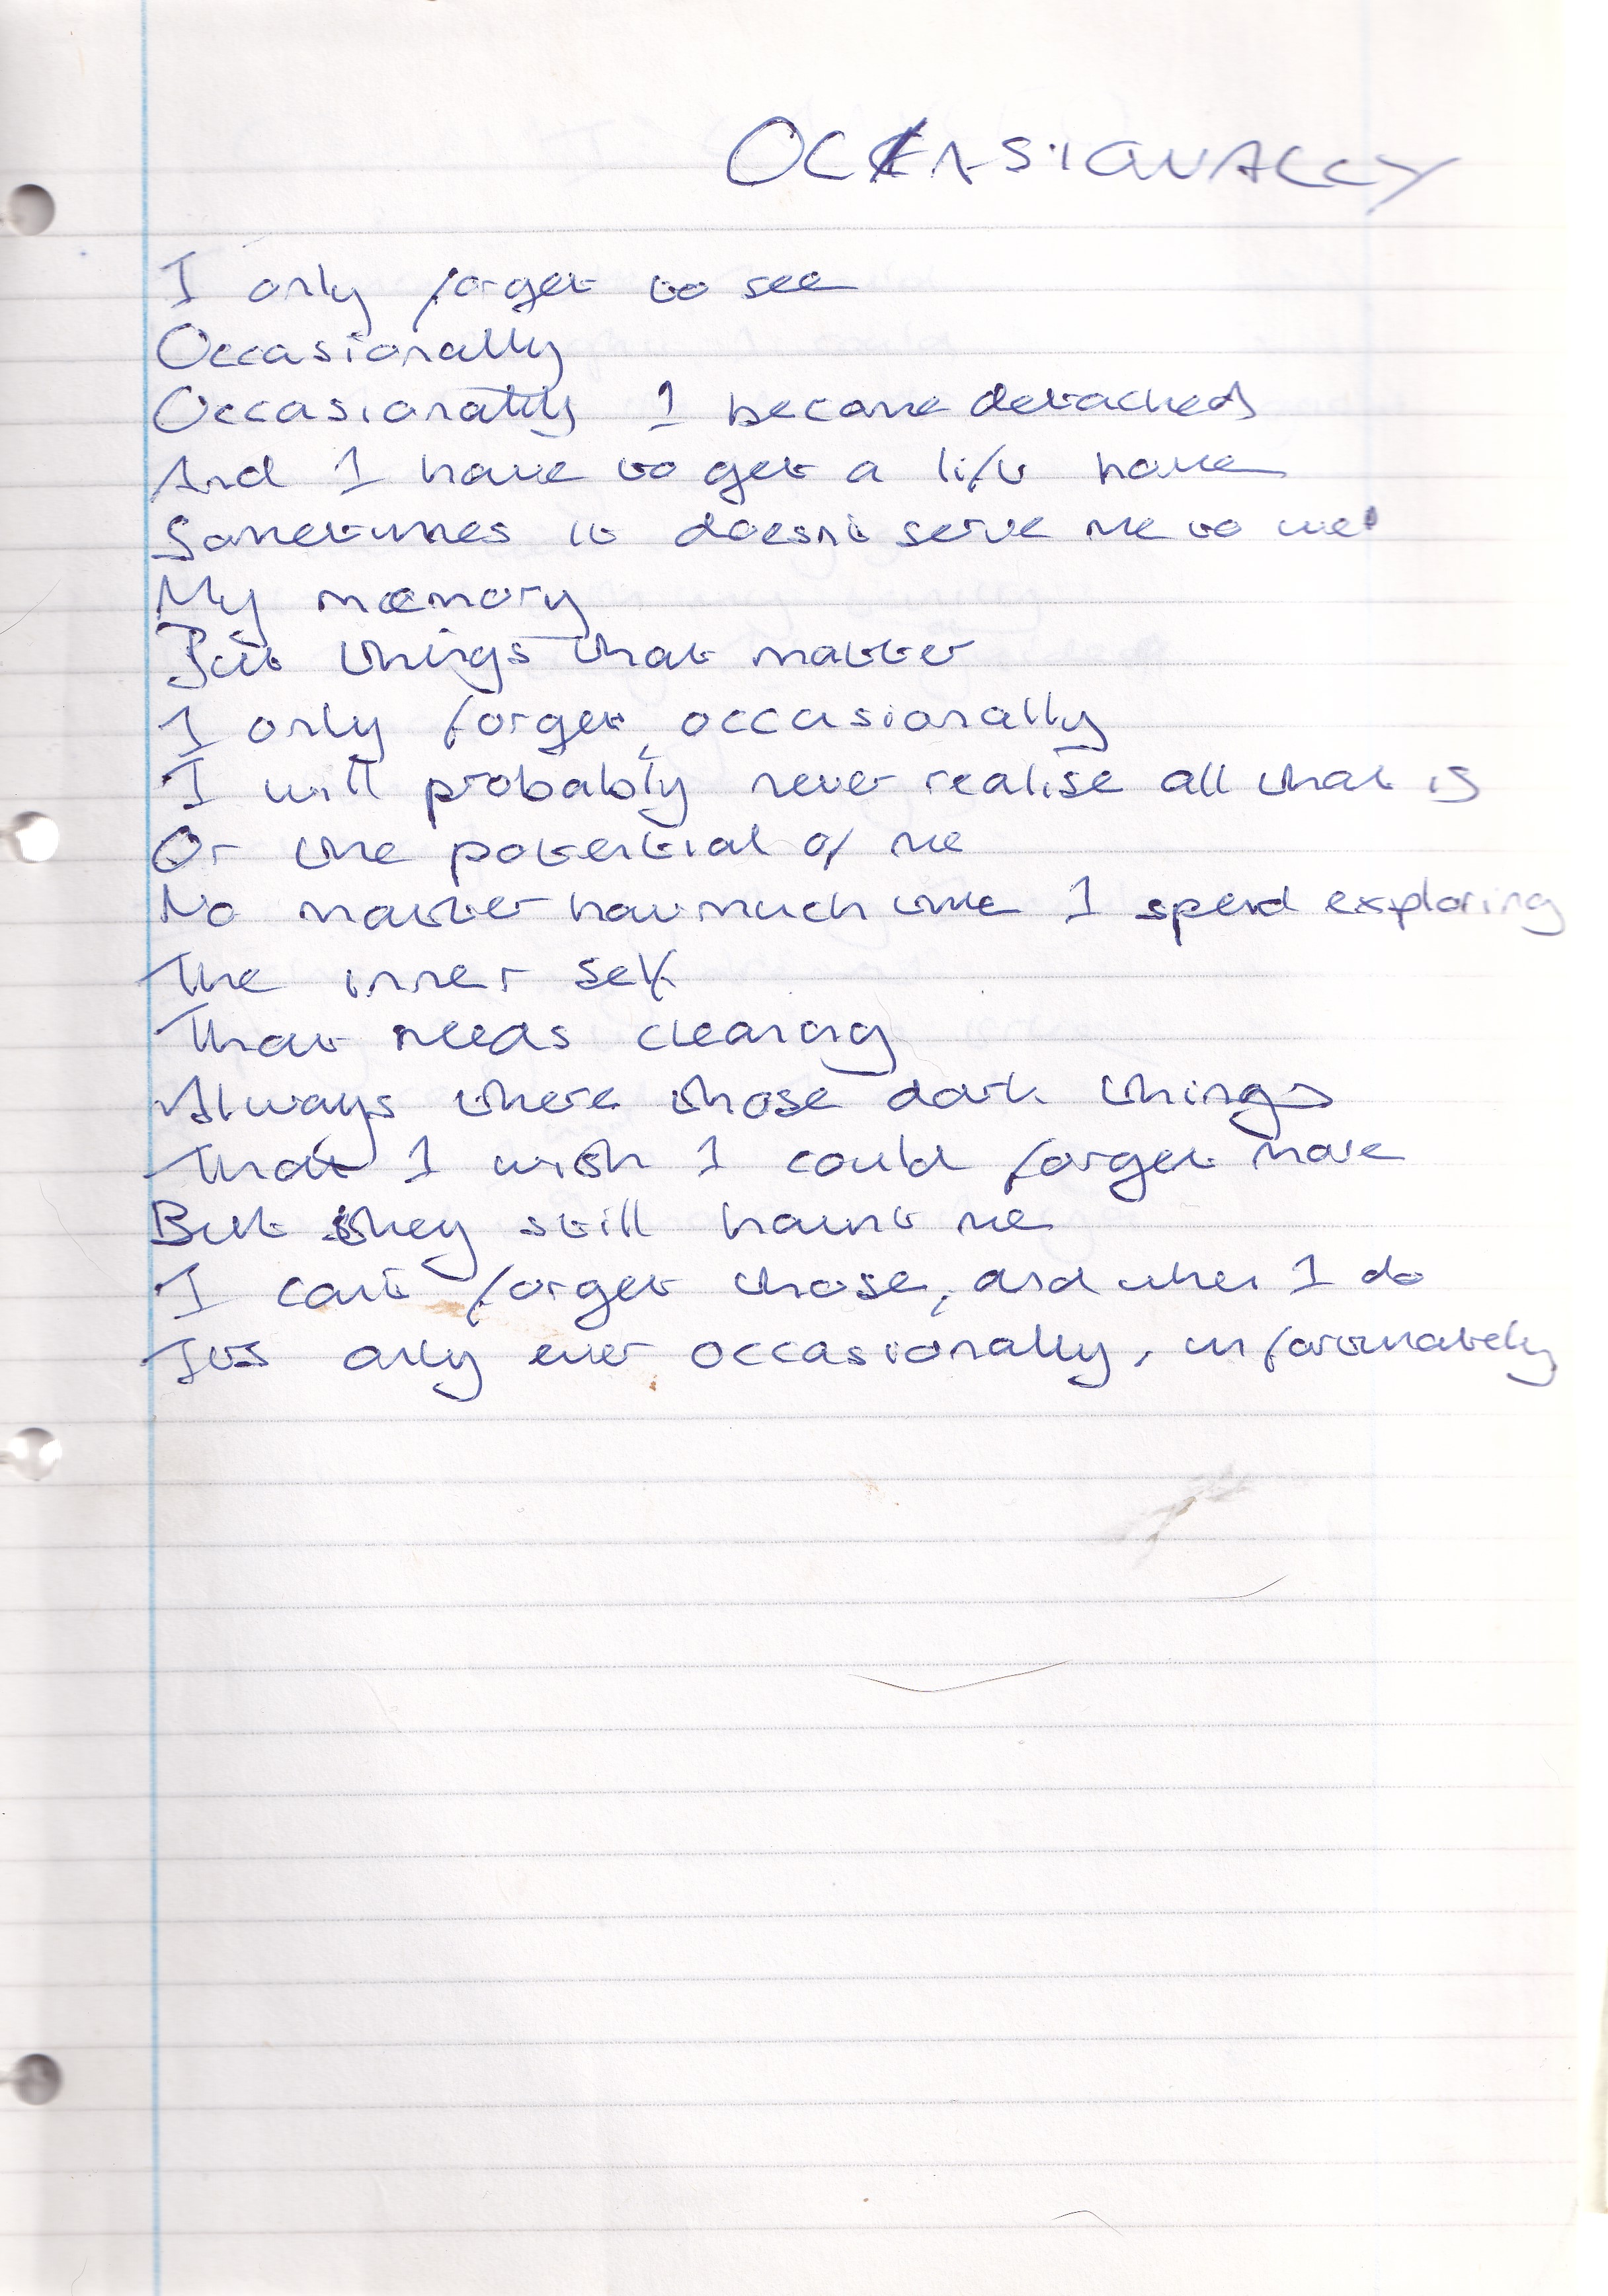 OCCASIONALLY
I only forget to see
Occasionally
Occasionally I become detached
And I have to get a lift home
Sometimes it doesn't serve me to
My memory
But things that matter
I only forget, occasionally
I will probably never realise all that is
Or the potential of me
No matter how much time I spend exploring
The inner self
That needs clearing
Always there those dark things
That I wish I could forget more
But they still haunt me
I can't forget those, and when I do
Its only ever occasionally, unfortunately